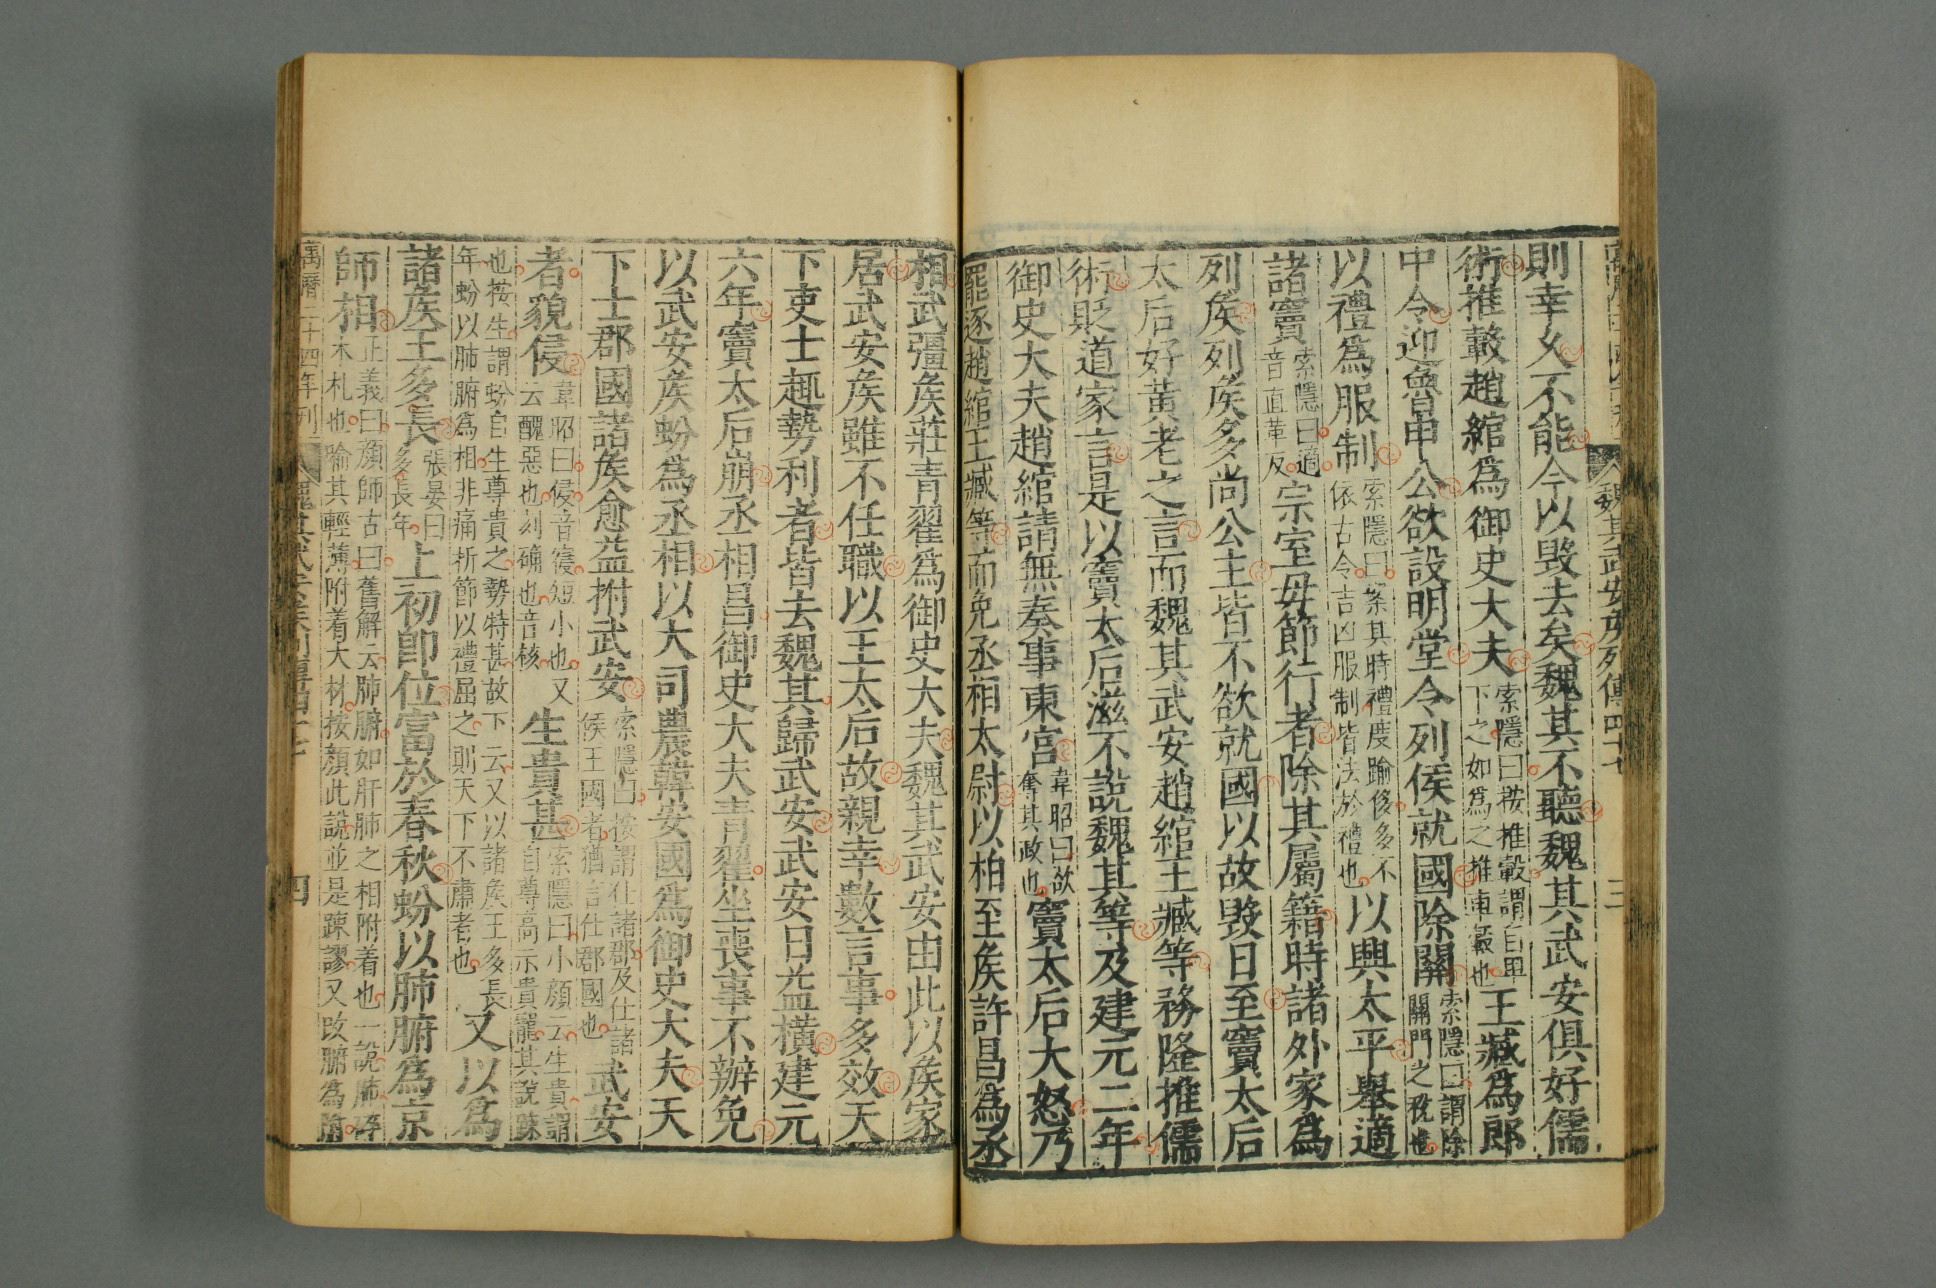 魏其武安矦列傳四十七
三
則幸乆不能今以毀去矣魏其不聽魏其武安俱好儒
術推轂趙綰爲御史大夫索隱曰按推轂謂自卑下之如爲之推車轂也王臧爲郎
中令迎魯申公欲設明堂令列侯就國除關索隱曰謂除關門之稅也
以禮爲服制索隱曰案其時禮度踰侈多不依古令吉凶服制皆法於禮也以興太平舉適
諸竇索隱曰適音直革反宗室毋節行者除其屬籍時諸外家爲
列矦列矦多尚公主皆不欲就國以故毀日至竇太后
太后好黃老之言而魏其武安趙綰王臧等務隆推儒
術貶道家言是以竇太后滋不說魏其等及建元二年
御史大夫趙綰請無奏事東宮韋昭曰欲奪其政也竇太后大怒乃
罷逐趙綰王臧等而免丞相太尉以柏至矦許昌爲丞
相武彊矦莊青翟爲御史大夫魏其武安由此以矦家
居武安矦雖不任職以王太后故親幸數言事多效天
下吏士趣勢利者皆去魏其歸武安武安日益橫建元
六年竇太后崩丞相昌御史大夫青翟坐喪事不辦免
以武安矦蚡爲丞相以大司農韓安國爲御史大夫天
下士郡國諸矦愈益附武安索隱曰按謂仕諸郡及仕諸侯王國者猶言仕郡國也武安
者貌侵韋昭曰侵音寑短小也又云醜惡也刻确也音核生貴甚索隱曰小顏云生貴謂自尊高示貴寵其說踈
也按生謂蚡自生尊貴之勢特甚故下云又以諸矦王多長年蚡以肺腑爲相非痛折節以禮屈之則天下不肅者也又以爲
諸矦王多長張晏曰多長年上初卽位富於春秋蚡以肺腑爲京
師相正義曰顏師古曰舊解云肺腑如肝肺之相附着也一說肺碎木札也喻其輕薄附着大材按顏此說並是踈謬又改腑爲附
萬曆二十四年刊
魏其武安矦列傳四十七
四